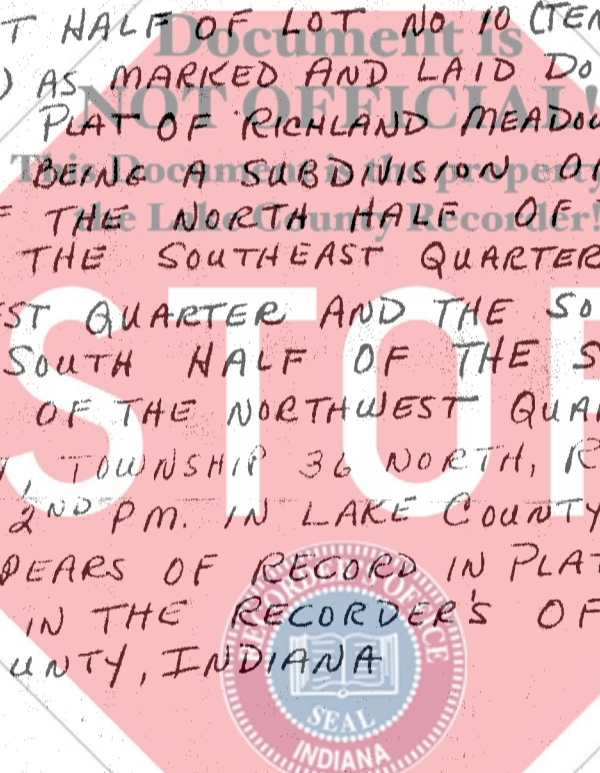 T HALF OF LOT NO 10 (TEN
) AS MARKED AND LAID DO
PLAT OF RICHLAND MEADOW
BEING A SUBDIVISION OF
F THE NORTH HALF OF T
THE SOUTHEAST QUARTER
EST QUARTER AND THE SO
SOUTH HALF OF THE S
OF THE NORTHWEST QUAR
, TOWNSHIP 36 NORTH, R
2ND PM. IN LAKE COUNTY
PEARS OF RECORD IN PLAT
IN THE RECORDER'S OF
UNTY, INDIANA
Document is
NOT OFFICIAL!
This Document is the property
the Lake County Recorder!
STOP
RECORDER'S OFFICE
SEAL
INDIANA